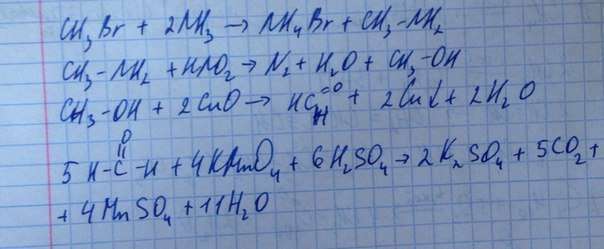 CH₃Br + 2NH₃ → NH₄Br + CH₃-NH₂
CH₃-NH₂ + HNO₂ → N₂ + H₂O + CH₃-OH
CH₃-OH + 2CuO → HC=O H + 2Cu↓ + 2H₂O
O
5 H-C-H + 4KMnO₄ + 6H₂SO₄ → 2K₂SO₄ + 5CO₂ +
+ 4MnSO₄ + 11H₂O